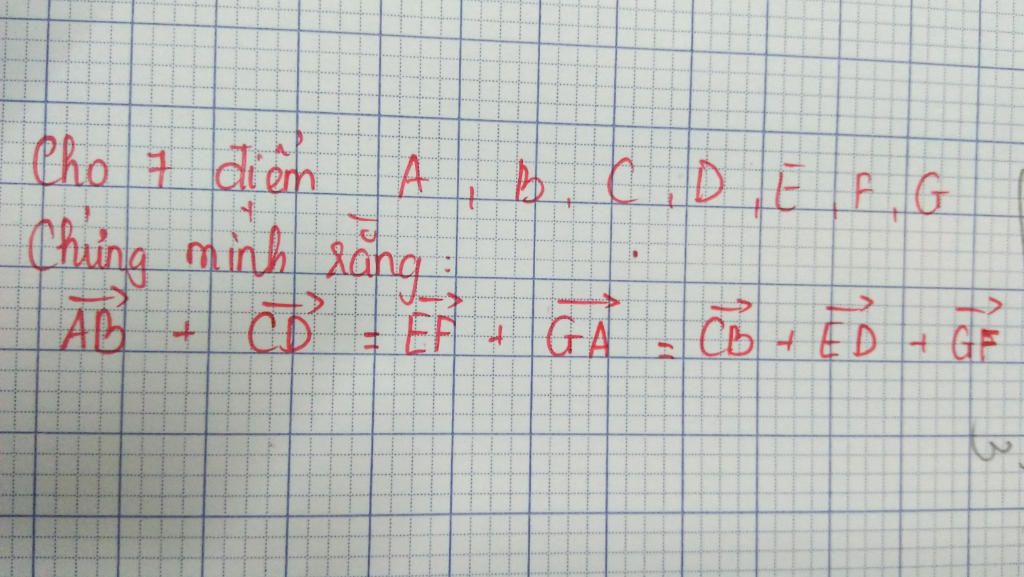 Cho 7 điểm A, B, C, D, E, F, G
Chứng minh rằng:
AB + CD = EF + GA = CB + ED + GF
3